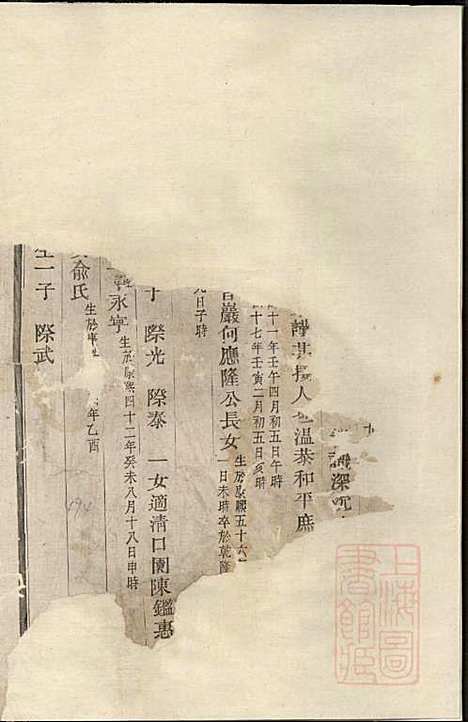 深沉
人 温恭和平庶
十一年壬午四月初五日午時
十七年壬寅二月初五日亥時
巖何應隆公長女
生於康熙五十六
日未時卒於乾隆
日子時
子 際光 際泰 一女適清口關陳鑑惠
永寧
生於康熙四十二年癸未八月十八日申時
俞氏
生於
年乙酉
生一子 際武
494
上海圖書館藏